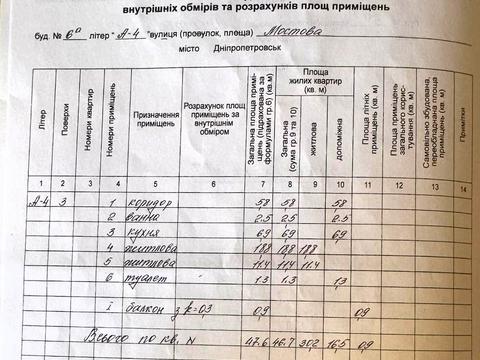 внутрішніх обмірів та розрахунків площ приміщень
буд. № 6а літер " А-4 "вулиця (провулок, площа) Мостова
місто Дніпропетровськ
Літер Поверхи Номери квартир Номери приміщень Призначення приміщень Розрахунок площ приміщень за внутрішнім обміром Загальна площа приміщень (підрахована за формулами гр.6) (кв.м) Площа жилих квартир (кв. м) Загальна (сума гр.9 та 10) житлова допоміжна Площа літніх приміщень (кв. м) Площа приміщень загального користування (кв. м) Самовільно збудована, переобладнана площа приміщень (кв. м) Примітки
1 2 3 4 5 6 7 8 9 10 11 12 13 14
А-4 3 1 коридор 5,8 5,8 5,8
2 ванна 2.5 2.5 2.5
3 кухня 6,9 6,9 6,9
4 житлова 18,8 18,8 18,8
5 житлова 11.4 11.4 11.4
6 туалет 1.3 1.3 1.3
I балкон з k=0,3 0,9 0,9
Всього по кв. N 47.6 46.7 30,2 16,5 0,9